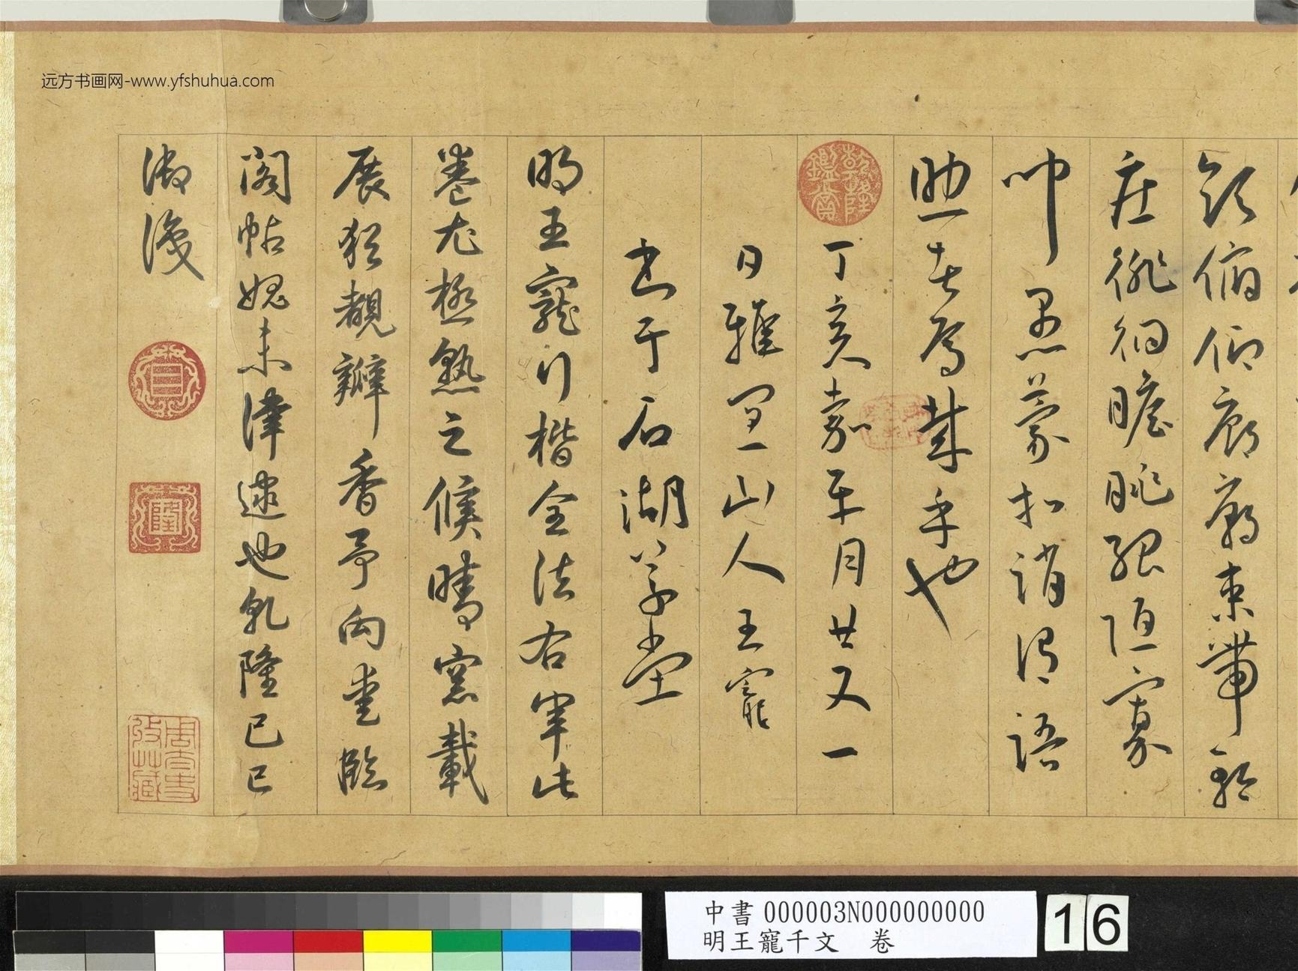 远方书画网-www.yfshuhua.com
領俯仰廊廟束帶矜
莊徘徊瞻眺孤陋寡
聞愚蒙等誚謂語
助者焉哉乎也
乾隆鑑賞
丁亥嘉平月廿又一
日雅宜山人王寵
書于石湖草堂
明王寵行楷全法右軍此
卷尤極熟之候晴窓載
展猶瓣香予向臨
閣帖媿未津逮也乾隆己巳
御識
乾
隆
中書 000003N000000000
明王寵千文 卷
16